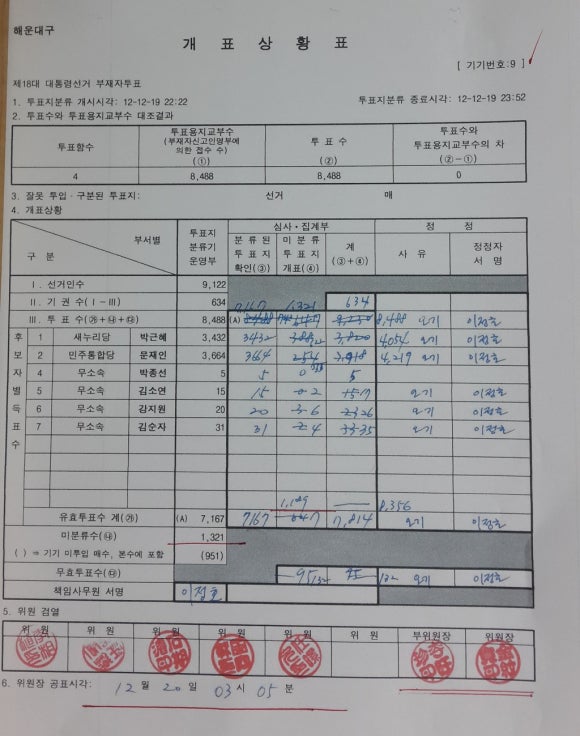 해운대구
개 표 상 황 표
[ 기기번호:9 ]
제18대 대통령선거 부재자투표
1. 투표지분류 개시시각: 12-12-19 22:22 투표지분류 종료시각: 12-12-19 23:52
2. 투표수와 투표용지교부수 대조결과
투표함수 투표용지교부수 (부재자신고인명부에 의한 접수 수) (①) 투 표 수 (②) 투표수와 투표용지교부수의 차 (②-①)
4 8,488 8,488 0
3. 잘못 투입·구분된 투표지: 선거 매
4. 개표상황
구 분 부서별 투표지 분류기 운영부 심사·집계부 정 정
분류된 투표지 확인(③) 미분류 투표지 개표(④) 계 (③+④) 사 유 정정자 서 명
Ⅰ. 선거인수 9,122
Ⅱ. 기 권 수(Ⅰ-Ⅲ) 634 7,167 1,321 634
Ⅲ. 투 표 수 8,488 (A) 8,488 오기 이정호
후보자별득표수
1 새누리당 박근혜 3,432 3432 4,054 오기 이정호
2 민주통합당 문재인 3,664 3664 254 3,918 4,219 오기 이정호
4 무소속 박종선 5 5 0 5
5 무소속 김소연 15 15 2 17 오기 이정호
6 무소속 김지원 20 20 6 26 오기 이정호
7 무소속 김순자 31 31 4 35 오기 이정호
1,189 8,356
유효투표수 계 (A) 7,167 7167 7,814 오기 이정호
미분류수 1,321
( ) ⇒ 기기 미투입 매수, 본수에 포함 (951)
무효투표수 95 132 132 오기 이정호
책임사무원 서명 이정호
5. 위원 검열
위 원 위 원 위 원 위 원 위 원 위 원 부위원장 위원장
6. 위원장 공표시각: 12 월 20 일 03 시 05 분